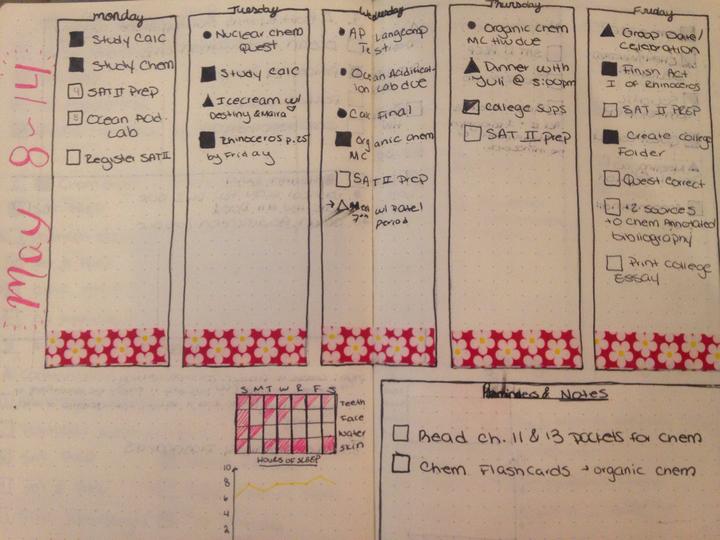 May 8-14
Monday
Study Calc
Study Chem
SAT II Prep
Ocean Acid.
Lab
Register SAT II
Tuesday
Nuclear chem
Quest
Study Calc
Icecream w/
Destiny & Maira
Rhinoceros p.25
by Friday
Wednesday
AP Lang comp
Test
Ocean Acidificat-
ion Lab due
Calc Final
Organic chem
MC
SAT II Prep
w/ Patel
7th period
Thursday
Organic chem
MC HW due
Dinner with
Yuli @ 5:00pm
College sups
SAT II Prep
Friday
Group Date/
celebration
Finish Act
I of Rhinoceros
SAT II PREP
Create college
Folder
Quest correct
+2 sources
to Chem Annotated
bibliography
Print College
Essay
S M T W R F S
Teeth
Face
Water
Skin
HOURS OF SLEEP
10
8
6
4
2
Reminders & Notes
Read ch. 11 & 13 pockets for chem
Chem Flashcards → organic chem